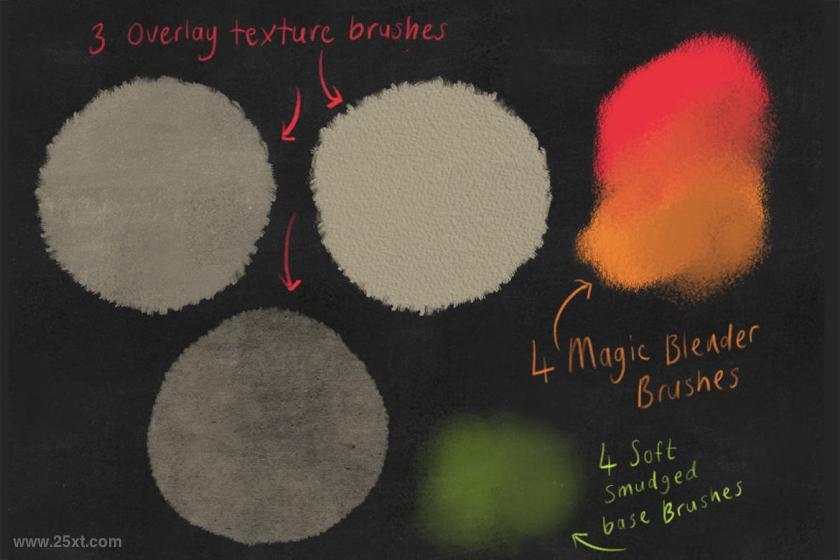 3 Overlay texture brushes
4 Magic Blender
Brushes
4 Soft
smudged
base Brushes
www.25xt.com